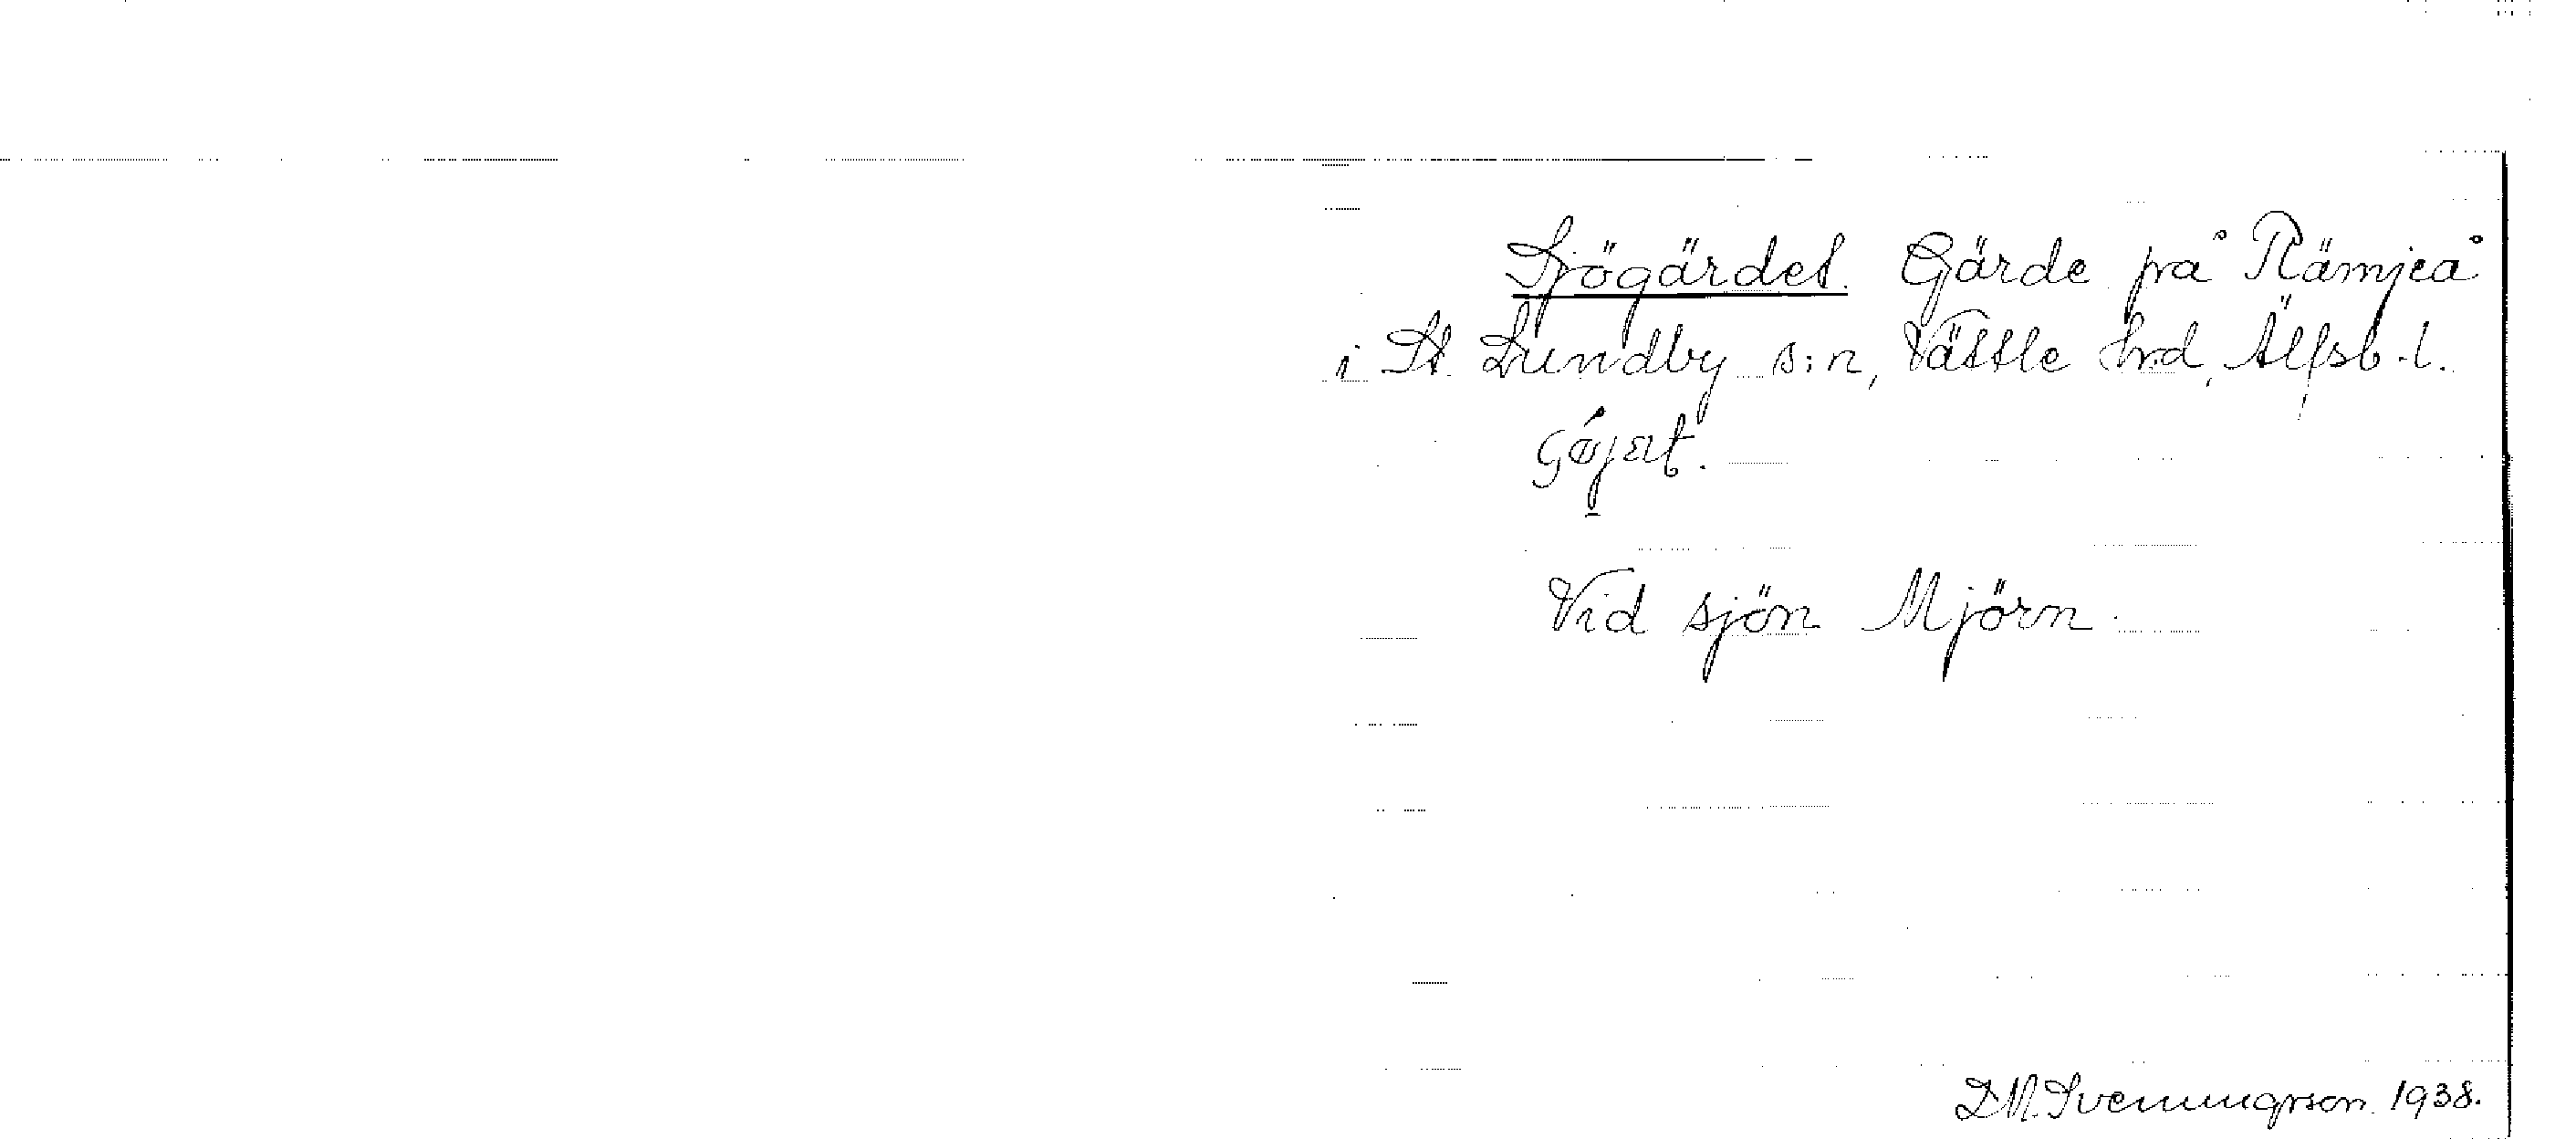 Sjögärdet. Gärde på Rämjeå
i St. Lundby s:n, Vättle hrd, Älfsb. l.
Vid sjön Mjörn.
D. N. Svenungsson. 1938.